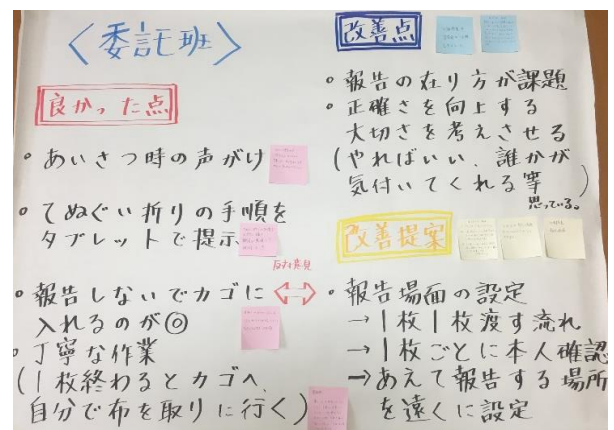 〈委託班〉
良かった点
・あいさつ時の声がけ
・てぬぐい折りの手順を
タブレットで提示
・報告しないでカゴに
入れるのが◎
・丁寧な作業
(1枚終わるとカゴへ、
自分で布を取りに行く)
改善点
・報告の在り方が課題
・正確さを向上する
大切さを考えさせる
(やればいい、誰かが
気付いてくれる等
思っている。
改善提案
反対意見
⇔
・報告場面の設定
→1枚1枚渡す流れ
→1枚ごとに本人確認
→あえて報告する場所
を遠くに設定